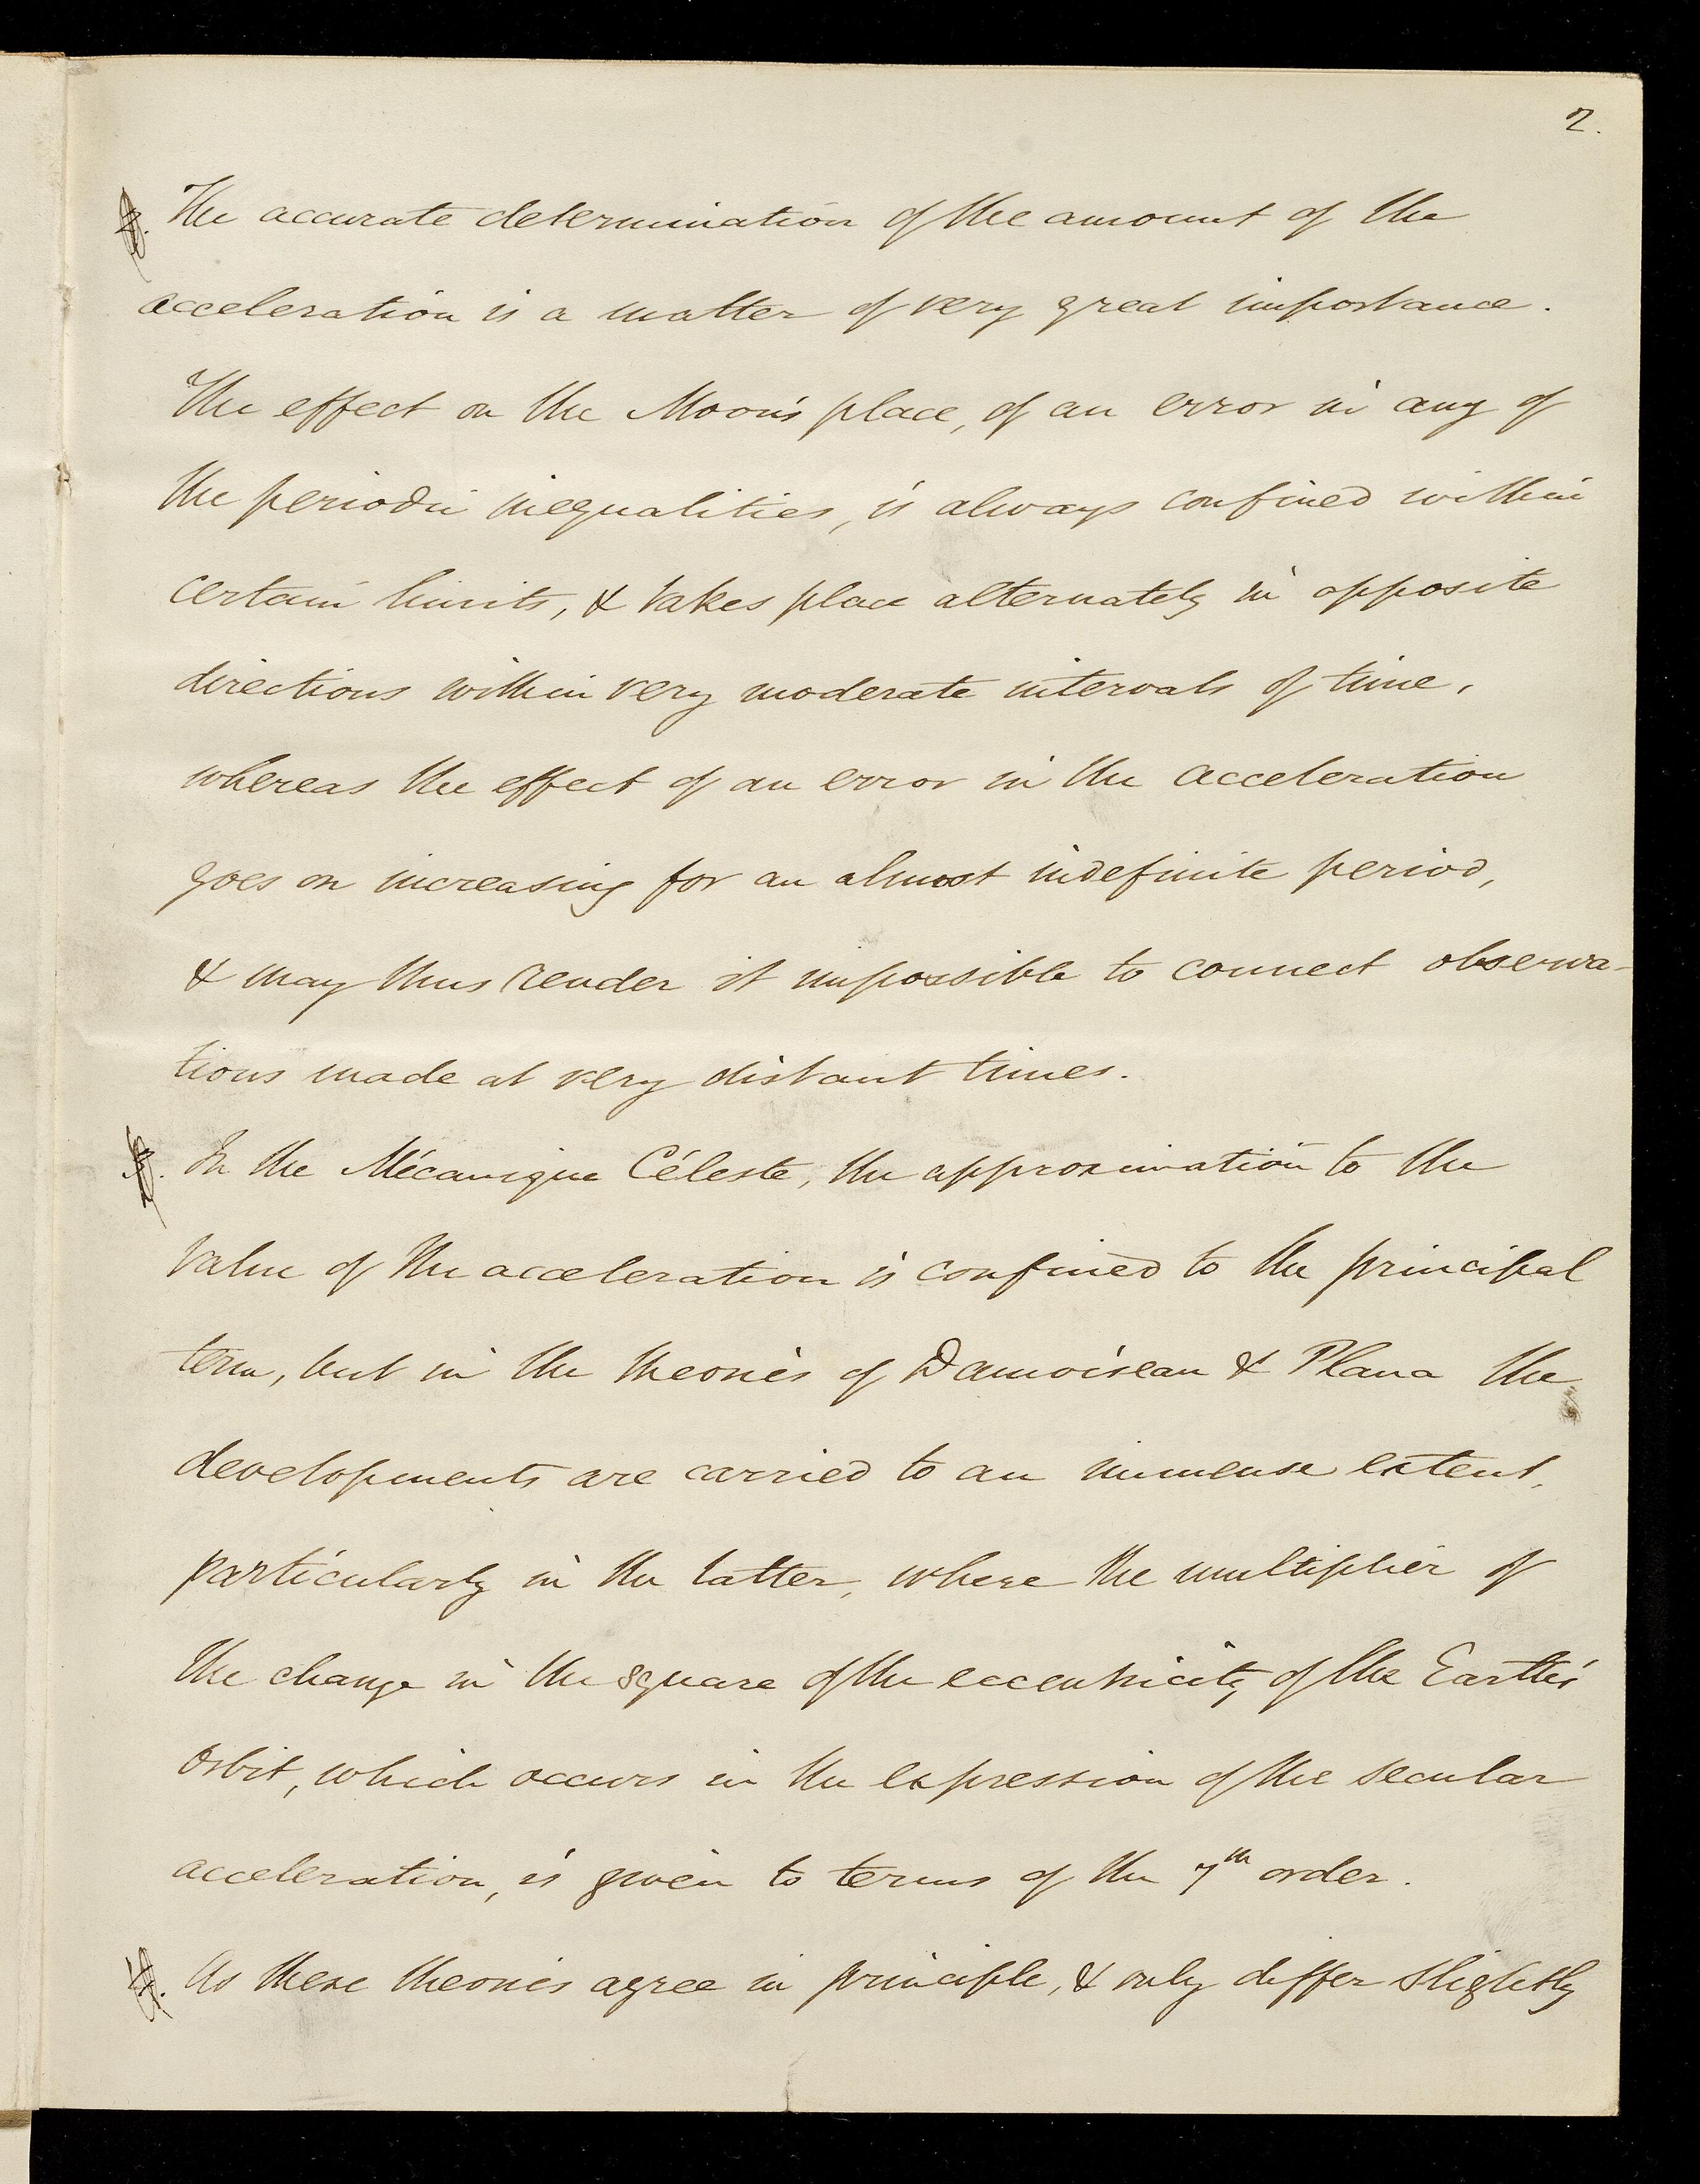 2.
The accurate determination of the amount of the
acceleration is a matter of very great importance.
The effect on the Moon's place, of an error in any of
the periodic inequalities, is always confined within
certain limits, & takes place alternately in opposite
directions within very moderate intervals of time,
whereas the effect of an error in the acceleration
goes on increasing for an almost indefinite period,
& may thus render it impossible to connect observa-
tions made at very distant times.
In the Mécanique Céleste, the approximation to the
value of the acceleration is confined to the principal
term, but in the theories of Damoiseau & Plana the
developments are carried to an immense extent,
particularly in the latter, where the multiplier of
the change in the square of the eccentricity of the Earth's
orbit, which occurs in the expression of the secular
acceleration, is given to terms of the 7th order.
As these theories agree in principle, & only differ slightly